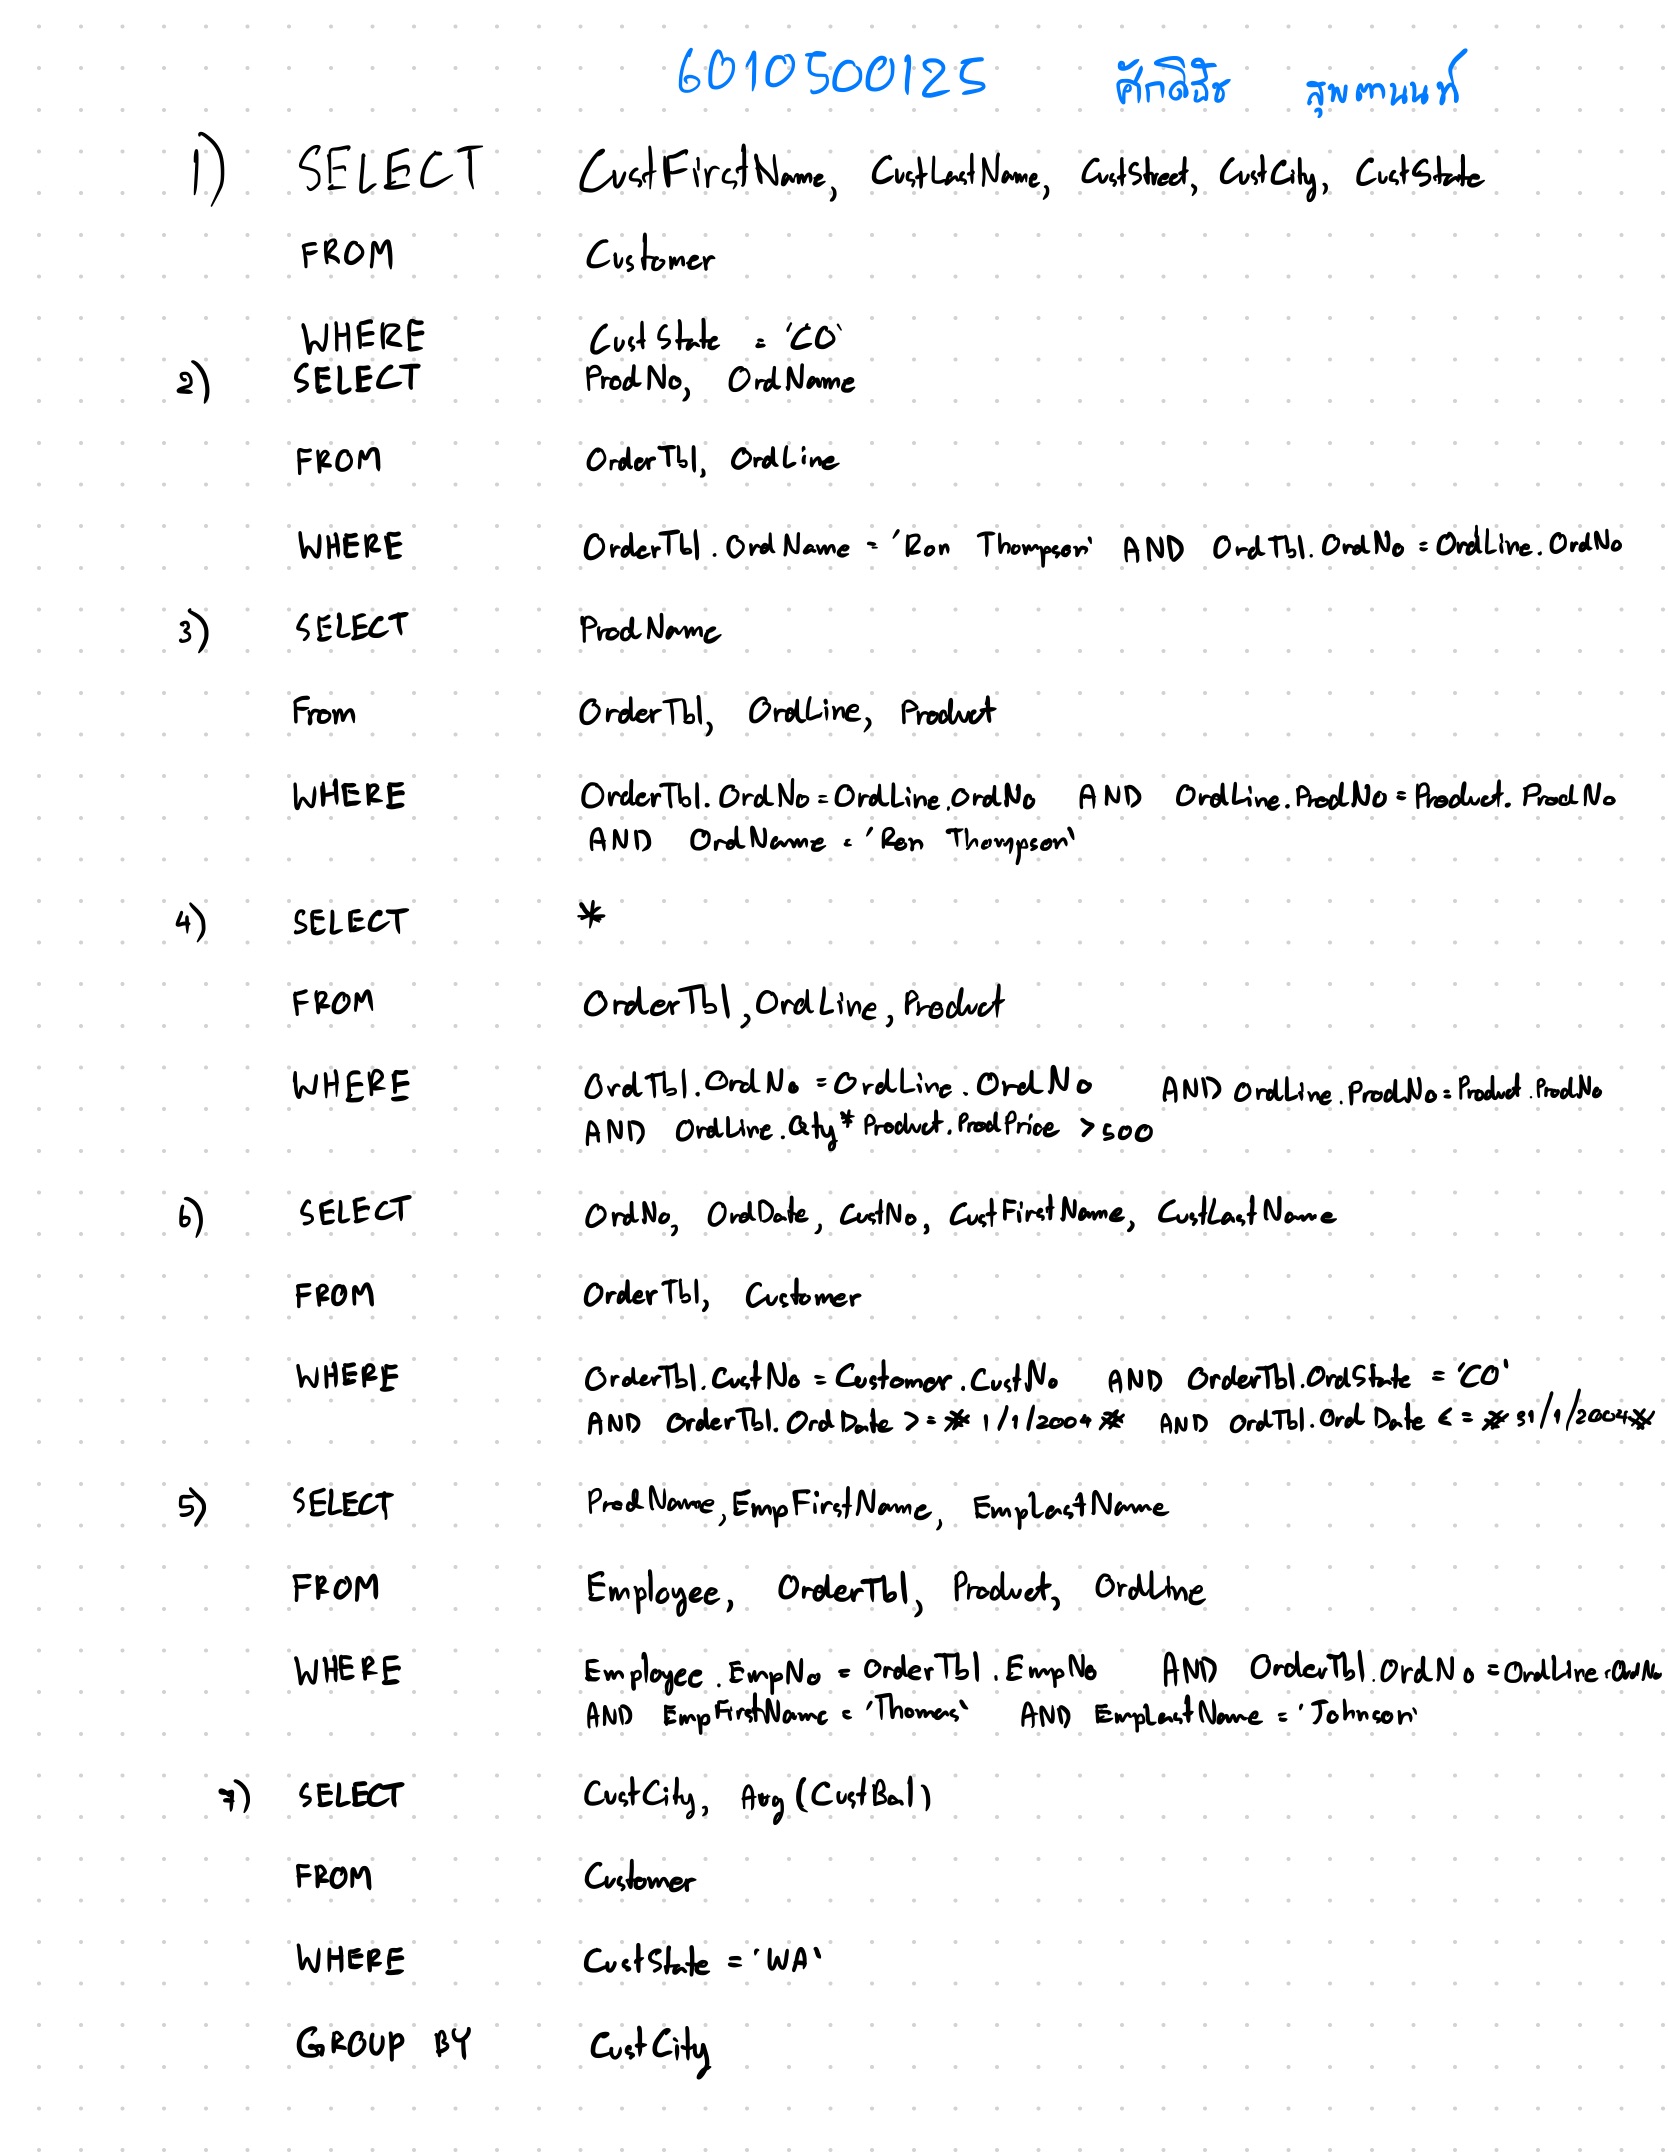 6010500125 ศักดิธัช สุพตานนท์
1) SELECT CustFirstName, CustLastName, CustStreet, CustCity, CustState
FROM Customer
WHERE CustState = 'CO'
2) SELECT ProdNo, OrdName
FROM OrderTbl, OrdLine
WHERE OrderTbl.OrdName = 'Ron Thompson' AND OrdTbl.OrdNo = OrdLine.OrdNo
3) SELECT ProdName
From OrderTbl, OrdLine, Product
WHERE OrderTbl.OrdNo = OrdLine.OrdNo AND OrdLine.ProdNo = Product.ProdNo
AND OrdName = 'Ron Thompson'
4) SELECT *
FROM OrderTbl, OrdLine, Product
WHERE OrdTbl.OrdNo = OrdLine.OrdNo AND OrdLine.ProdNo = Product.ProdNo
AND OrdLine.Qty * Product.ProdPrice > 500
6) SELECT OrdNo, OrdDate, CustNo, CustFirstName, CustLastName
FROM OrderTbl, Customer
WHERE OrderTbl.CustNo = Customer.CustNo AND OrderTbl.OrdState = 'CO'
AND OrderTbl.OrdDate >= # 1/1/2004 # AND OrdTbl.OrdDate <= # 31/1/2004 #
5) SELECT ProdName, EmpFirstName, EmpLastName
FROM Employee, OrderTbl, Product, OrdLine
WHERE Employee.EmpNo = OrderTbl.EmpNo AND OrderTbl.OrdNo = OrdLine.OrdNo
AND EmpFirstName = 'Thomas' AND EmpLastName = 'Johnson'
7) SELECT CustCity, Avg (CustBal)
FROM Customer
WHERE CustState = 'WA'
GROUP BY CustCity